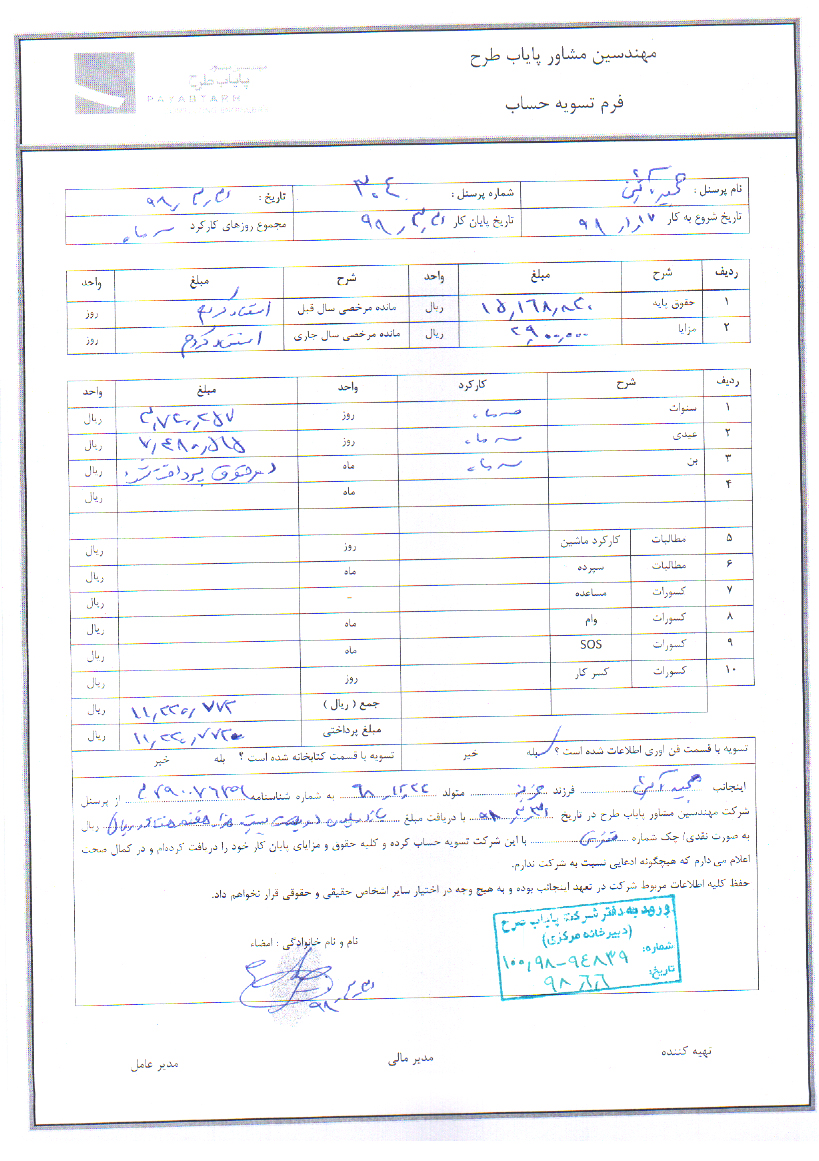 مهندسین مشاور پایاب طرح
فرم تسویه حساب
پایاب طرح
PAYABTARH
نام پرسنل : شماره پرسنل : ۳۰۴ تاریخ : ۹۸٫۳٫۳۱
تاریخ شروع به کار ۹۸٫۱٫۱۷ تاریخ پایان کار ۹۸٫۳٫۳۱ مجموع روزهای کارکرد سه ماه
ردیف شرح مبلغ واحد شرح مبلغ واحد
۱ حقوق پایه ۱۵٫۱۶۸٫۸۳۰ ریال مانده مرخصی سال قبل استفاده کردم روز
۲ مزایا ۲۹۰۰٫۰۰۰ ریال مانده مرخصی سال جاری استفاده کردم روز
ردیف شرح کارکرد واحد مبلغ واحد
۱ سنوات سه ماه روز ریال
۲ عیدی سه ماه روز ۷٫۴۸۰٫۵۱۵ ریال
۳ بن سه ماه ماه در حقوق پرداخت شد ریال
۴ ماه ریال
۵ مطالبات کارکرد ماشین روز ریال
۶ مطالبات سپرده ماه ریال
۷ کسورات مساعده - ریال
۸ کسورات وام ماه ریال
۹ کسورات SOS ماه ریال
۱۰ کسورات کسر کار روز ریال
جمع ( ریال ) ۱۱٫۲۲۰٫۷۷۲ ریال
مبلغ پرداختی ۱۱٫۲۲۰٫۷۷۲ ریال
تسویه با قسمت فن اوری اطلاعات شده است ؟ بله خیر تسویه با قسمت کتابخانه شده است ؟ بله خیر
اینجانب فرزند متولد ۶۸٫۱۲٫۲۲ به شماره شناسنامه از پرسنل
شرکت مهندسین مشاور پایاب طرح در تاریخ ۹۸٫۳٫۳۱ با دریافت مبلغ ریال
به صورت نقدی/ چک شماره با این شرکت تسویه حساب کرده و کلیه حقوق و مزایای پایان کار خود را دریافت کرده‌ام و در کمال صحت
اعلام می دارم که هیچگونه ادعایی نسبت به شرکت ندارم.
حفظ کلیه اطلاعات مربوط شرکت در تعهد اینجانب بوده و به هیچ وجه در اختیار سایر اشخاص حقیقی و حقوقی قرار نخواهم داد.
ورود به دفتر شرکت پایاب طرح
(دبیرخانه مرکزی)
شماره: ۱۰۰٫۹۸-۹۴۸۳۹
تاریخ: ۹۸٫۶٫۶
نام و نام خانوادگی : امضاء
۹۸٫۳٫۳۱
تهیه کننده مدیر مالی مدیر عامل